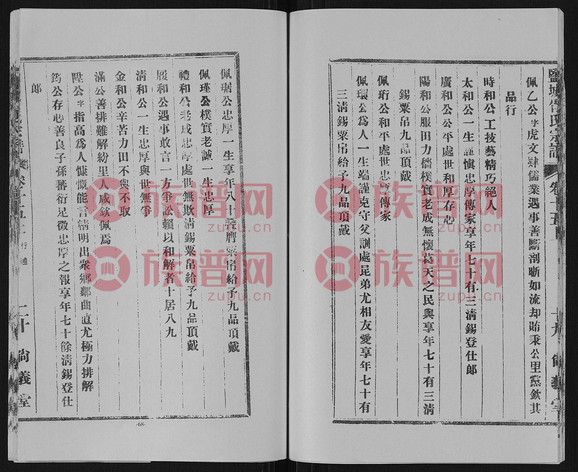 佩乙公字虎文肄儒業遇事善斷剖晰如流却賄秉公里黨欽其
品行
時和公工技藝精巧絕人
太和公一生謹慎忠厚傳家享年七十有三清錫登仕郎
廣和公公平處世和厚存心
陽和公服田力穡樸實老成無懷葛天之民與享年七十有三清
錫粟帛九品頂戴
佩珩公和平處世忠厚傳家
佩環公為人一生端謹克守父訓處昆弟尤相友愛享年七十有
三清錫粟帛給予九品頂戴
鹽城
氏宗譜
卷十五
尚義堂
佩琚公忠厚一生享年八十
粟帛給予九品頂戴
佩瑾公樸實老誠一生忠厚
禮和公老成忠厚處世無欺清錫粟帛給予九品頂戴
履和公遇事敢言一方爭訟賴以和解者十居八九
清和公一生忠厚與世無爭
金和公辛苦力田不與不取
滿公善排難解紛里人咸欽佩焉
陞公字指高為人慷慨能言明出眾鄉鄰曲直尤極力排解
鈞公存心善良子孫蕃衍足徵忠厚之報享年七十餘清錫登仕
郎
五
行述
二十
尚義堂
族譜网
zupu.cn